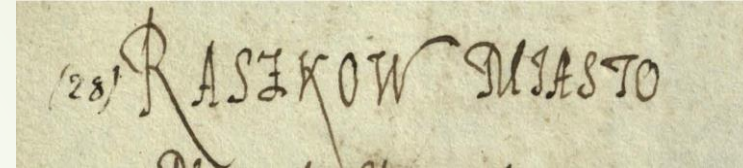 (28) RASZKOW MIASTO